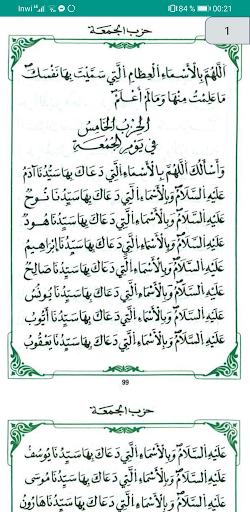 Inwi 84 % 00:21
1
حزب الجمعة
اَللَّهُمَّ بِالْأَسْمَاءِ الْعِظَامِ الَّتِي سَمَّيْتَ بِهَا نَفْسَكَ
مَا عَلِمْتُ مِنْهَا وَمَا لَمْ أَعْلَمْ
اَلْحِزْبُ الْخَامِسُ
فِي يَوْمِ الْجُمُعَةِ
وَأَسْأَلُكَ اللَّهُمَّ بِالْأَسْمَاءِ الَّتِي دَعَاكَ بِهَا سَيِّدُنَا آدَمُ
عَلَيْهِ السَّلَامُ وَبِالْأَسْمَاءِ الَّتِي دَعَاكَ بِهَا سَيِّدُنَا نُوحٌ
عَلَيْهِ السَّلَامُ وَبِالْأَسْمَاءِ الَّتِي دَعَاكَ بِهَا سَيِّدُنَا هُودٌ
عَلَيْهِ السَّلَامُ وَبِالْأَسْمَاءِ الَّتِي دَعَاكَ بِهَا سَيِّدُنَا إِبْرَاهِيمُ
عَلَيْهِ السَّلَامُ وَبِالْأَسْمَاءِ الَّتِي دَعَاكَ بِهَا سَيِّدُنَا صَالِحٌ
عَلَيْهِ السَّلَامُ وَبِالْأَسْمَاءِ الَّتِي دَعَاكَ بِهَا سَيِّدُنَا يُونُسُ
عَلَيْهِ السَّلَامُ وَبِالْأَسْمَاءِ الَّتِي دَعَاكَ بِهَا سَيِّدُنَا أَيُّوبُ
عَلَيْهِ السَّلَامُ وَبِالْأَسْمَاءِ الَّتِي دَعَاكَ بِهَا سَيِّدُنَا يَعْقُوبُ
99
حزب الجمعة
عَلَيْهِ السَّلَامُ وَبِالْأَسْمَاءِ الَّتِي دَعَاكَ بِهَا سَيِّدُنَا يُوسُفُ
عَلَيْهِ السَّلَامُ وَبِالْأَسْمَاءِ الَّتِي دَعَاكَ بِهَا سَيِّدُنَا مُوسَى
عَلَيْهِ السَّلَامُ وَبِالْأَسْمَاءِ الَّتِي دَعَاكَ بِهَا سَيِّدُنَا هَارُونُ